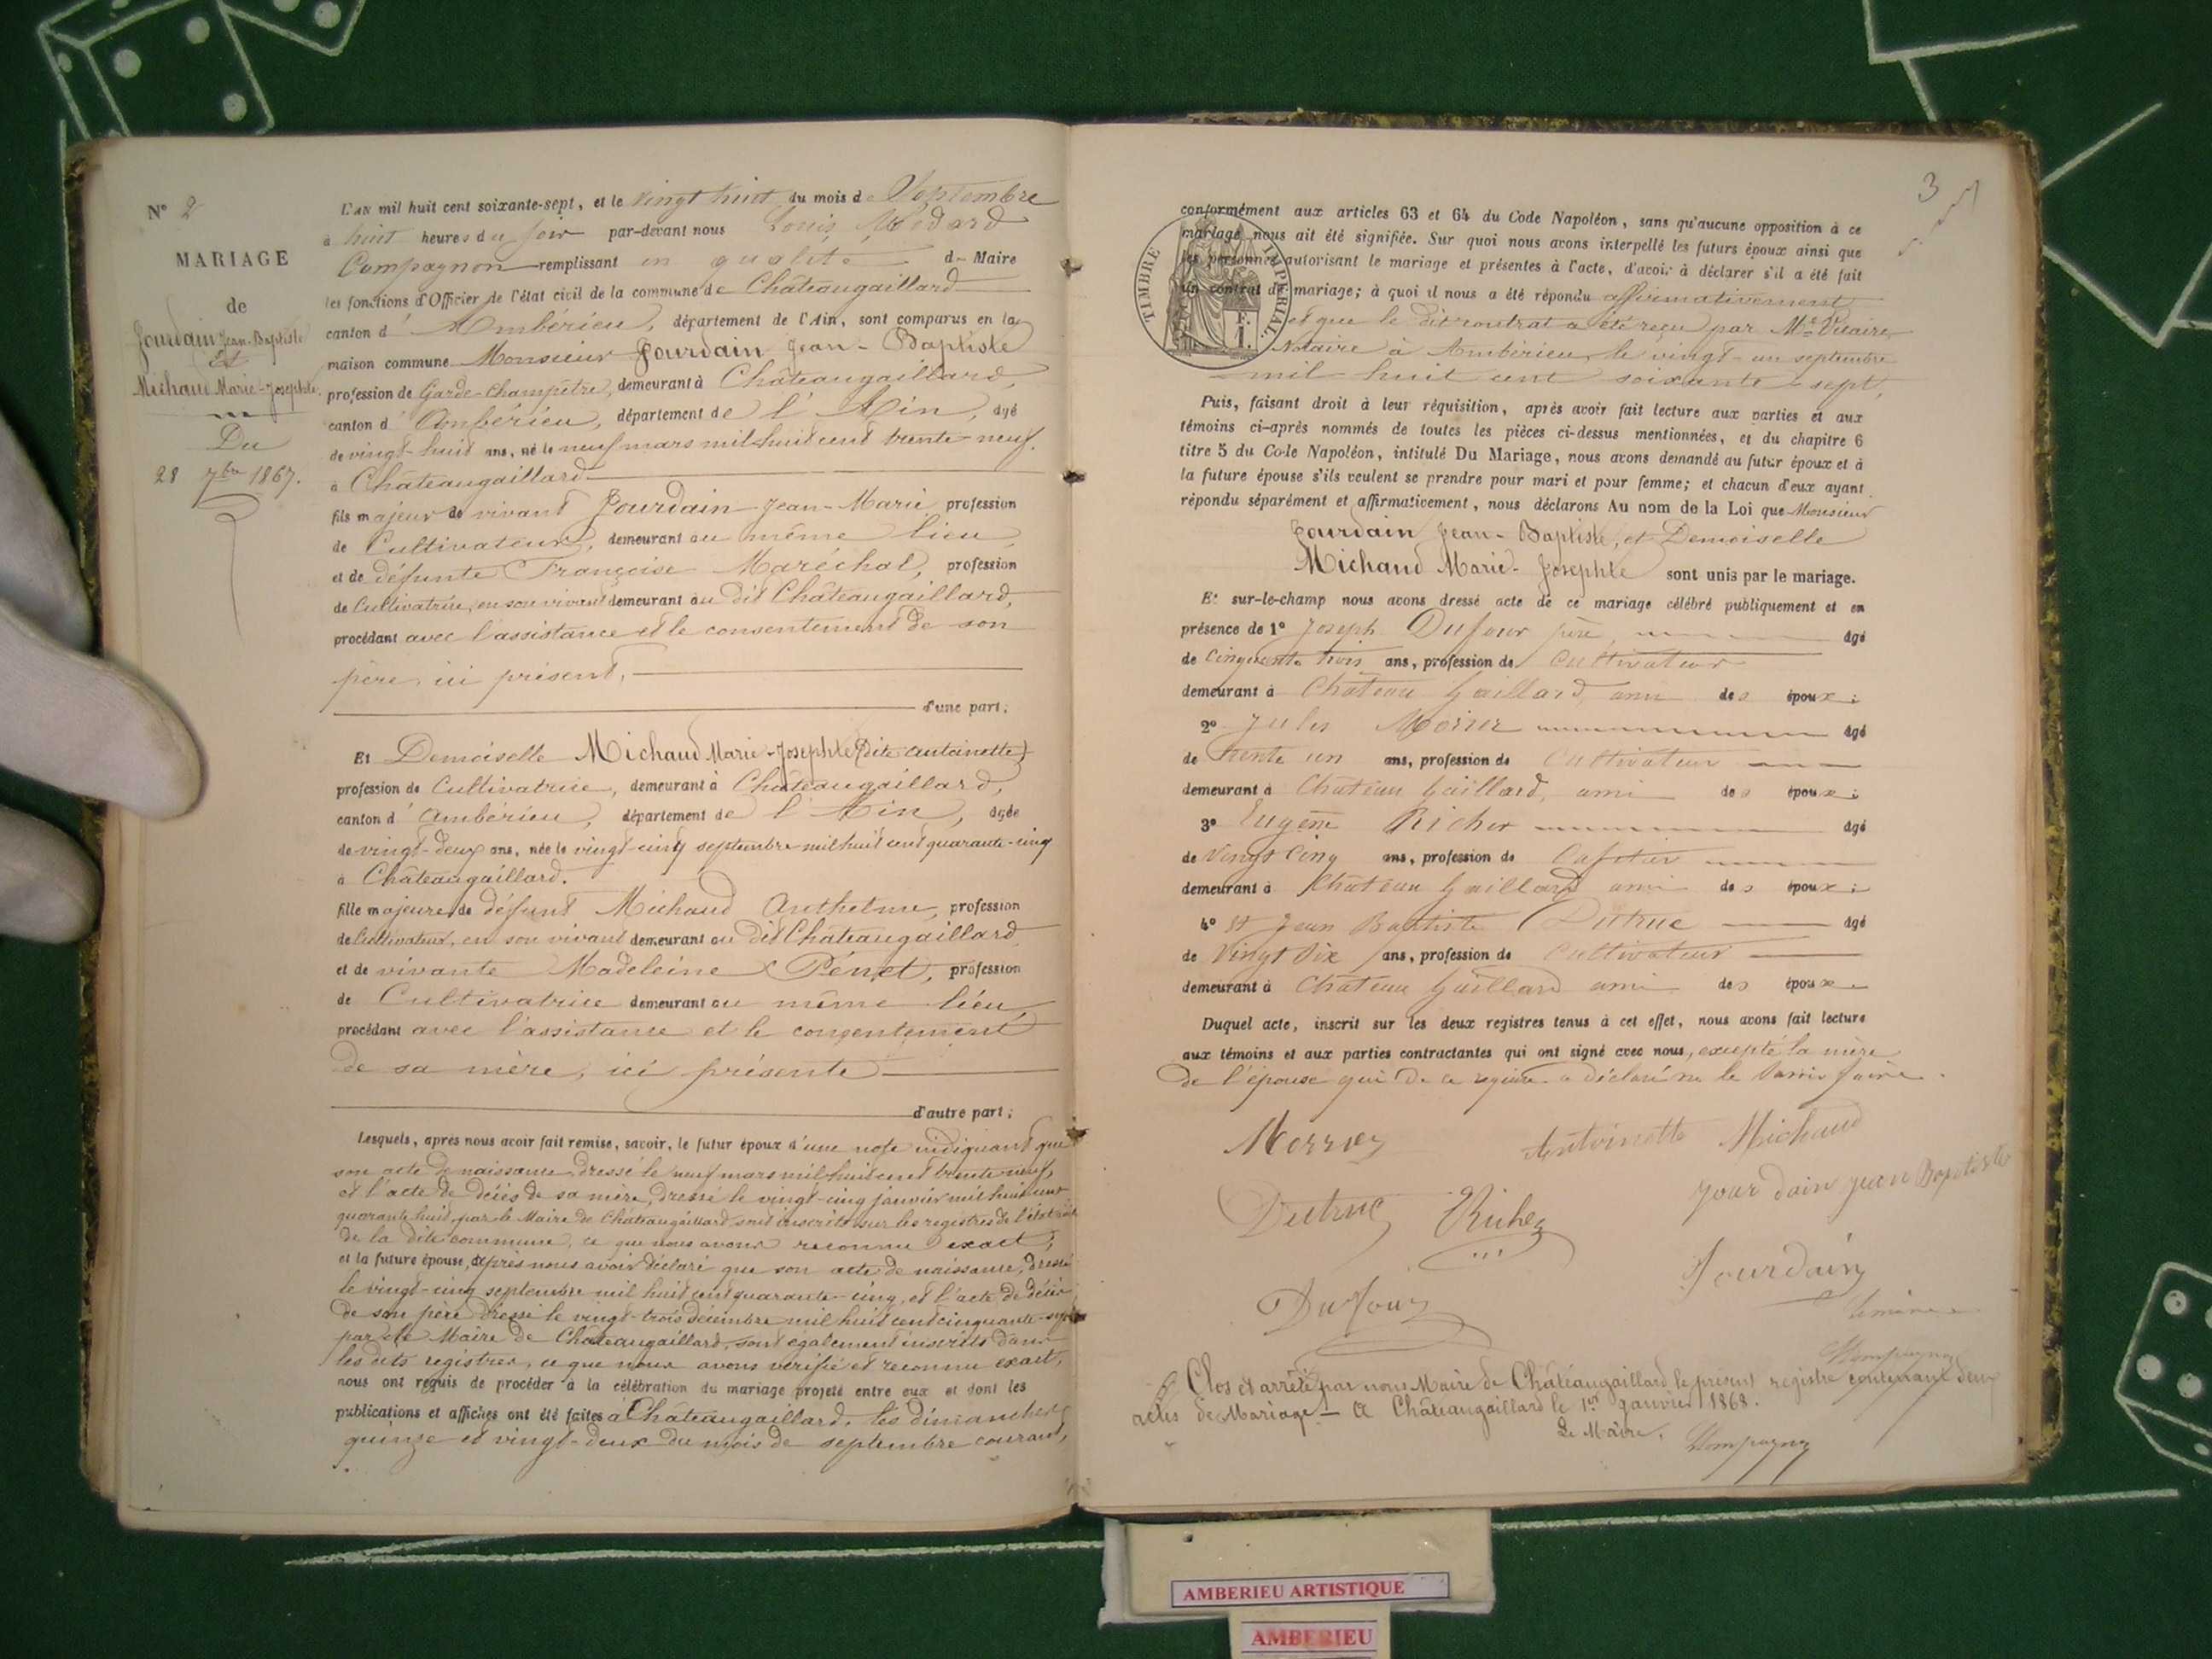 N° 2
MARIAGE
de
Jourdain Jean-Baptiste
Et
Michaud Marie-Josephte.
Du
28 7bre 1867.
L'AN mil huit cent soixante-sept, et le vingt huit du mois de Septembre
à huit heures du soir par-devant nous Louis Médard
Compagnon remplissant en qualité de Maire
les fonctions d'Officier de l'état civil de la commune de Châteaugaillard
canton d'Ambérieu, département de l'Ain, sont comparus en la
maison commune Monsieur Jourdain Jean-Baptiste
profession de Garde-champêtre, demeurant à Châteaugaillard,
canton d'Ambérieu, département de l'Ain, âgé
de vingt-huit ans, né le neuf mars mil huit cent trente-neuf.
à Châteaugaillard
fils majeur de vivant Jourdain Jean-Marie profession
de Cultivateur, demeurant au même lieu,
et de défunte Françoise Maréchal, profession
de Cultivatrice, en son vivant demeurant au dit Châteaugaillard,
procédant avec l'assistance et le consentement de son
père, ici présent,
d'une part;
Et Demoiselle Michaud Marie-Josephte (dite Antoinette)
profession de Cultivatrice, demeurant à Châteaugaillard,
canton d'Ambérieu, département de l'Ain, âgée
de vingt-deux ans, née le vingt-cinq septembre mil huit cent quarante-cinq
à Châteaugaillard.
fille majeure de défunt Michaud Anthelme, profession
de Cultivateur, en son vivant demeurant au dit Châteaugaillard,
et de vivante Madeleine Pénet, profession
de Cultivatrice demeurant au même lieu,
procédant avec l'assistance et le consentement
de sa mère, ici présente
d'autre part;
Lesquels, après nous avoir fait remise, savoir, le futur époux d'une note indiquant que
son acte de naissance dressé le neuf mars mil huit cent trente neuf,
et l'acte de décès de sa mère, dressé le vingt-cinq janvier mil huit cent
quarante huit par le Maire de Châteaugaillard sont inscrits sur les registres de l'état civil
de la dite commune, ce que nous avons reconnu exact;
et la future épouse, après nous avoir déclaré que son acte de naissance, dressé
le vingt-cinq septembre mil huit cent quarante-cinq, et l'acte de décès
de son père dressé le vingt-trois décembre mil huit cent cinquante-sept
par le Maire de Châteaugaillard, sont également inscrits dans
les dits registres, ce que nous avons vérifié et reconnu exact,
nous ont requis de procéder à la célébration du mariage projeté entre eux et dont les
publications et affiches ont été faites à Châteaugaillard, les dimanches
quinze et vingt-deux du mois de septembre courant,
3
conformément aux articles 63 et 64 du Code Napoléon, sans qu'aucune opposition à ce
mariage nous ait été signifiée. Sur quoi nous avons interpellé les futurs époux ainsi que
les personnes autorisant le mariage et présentes à l'acte, d'avoir à déclarer s'il a été fait
un contrat de mariage; à quoi il nous a été répondu affirmativement
et que le dit contrat a été reçu par Me
Notaire à Ambérieu, le vingt-un septembre
mil huit cent soixante-sept,
TIMBRE IMPERIAL.
F.
1.
Puis, faisant droit à leur réquisition, après avoir fait lecture aux parties et aux
témoins ci-après nommés de toutes les pièces ci-dessus mentionnées, et du chapitre 6
titre 5 du Code Napoléon, intitulé Du Mariage, nous avons demandé au futur époux et à
la future épouse s'ils veulent se prendre pour mari et pour femme; et chacun d'eux ayant
répondu séparément et affirmativement, nous déclarons Au nom de la Loi que Monsieur
Jourdain Jean-Baptiste, et Demoiselle
Michaud Marie-Josephte sont unis par le mariage.
Et sur-le-champ nous avons dressé acte de ce mariage célébré publiquement et en
présence de 1° Joseph Dufour père, âgé
de Cinquante trois ans, profession de Cultivateur
demeurant à Château Gaillard, ami des époux;
2° Jules Morrier âgé
de trente un ans, profession de Cultivateur
demeurant à Château Gaillard, ami des époux;
3° Eugène Richer âgé
de Vingt Cinq ans, profession de Cafetier
demeurant à Château Gaillard ami des époux;
4° et Jean Baptiste Dutruc âgé
de Vingt Six ans, profession de Cultivateur
demeurant à Château Gaillard ami des époux
Duquel acte, inscrit sur les deux registres tenus à cet effet, nous avons fait lecture
aux témoins et aux parties contractantes qui ont signé avec nous, excepté la mère
de l'épouse qui de ce requise a déclaré ne le savoir faire.
Antoinette Michaud
jour dain jean Baptiste
Dutruc
Jourdain
Dufour
Clos et arrêté par nous Maire de Châteaugaillard le présent registre contenant deux
actes de Mariage — A Châteaugaillard le 1er janvier 1868.
Le Maire.
Compagnon
AMBERIEU ARTISTIQUE
AMBERIEU